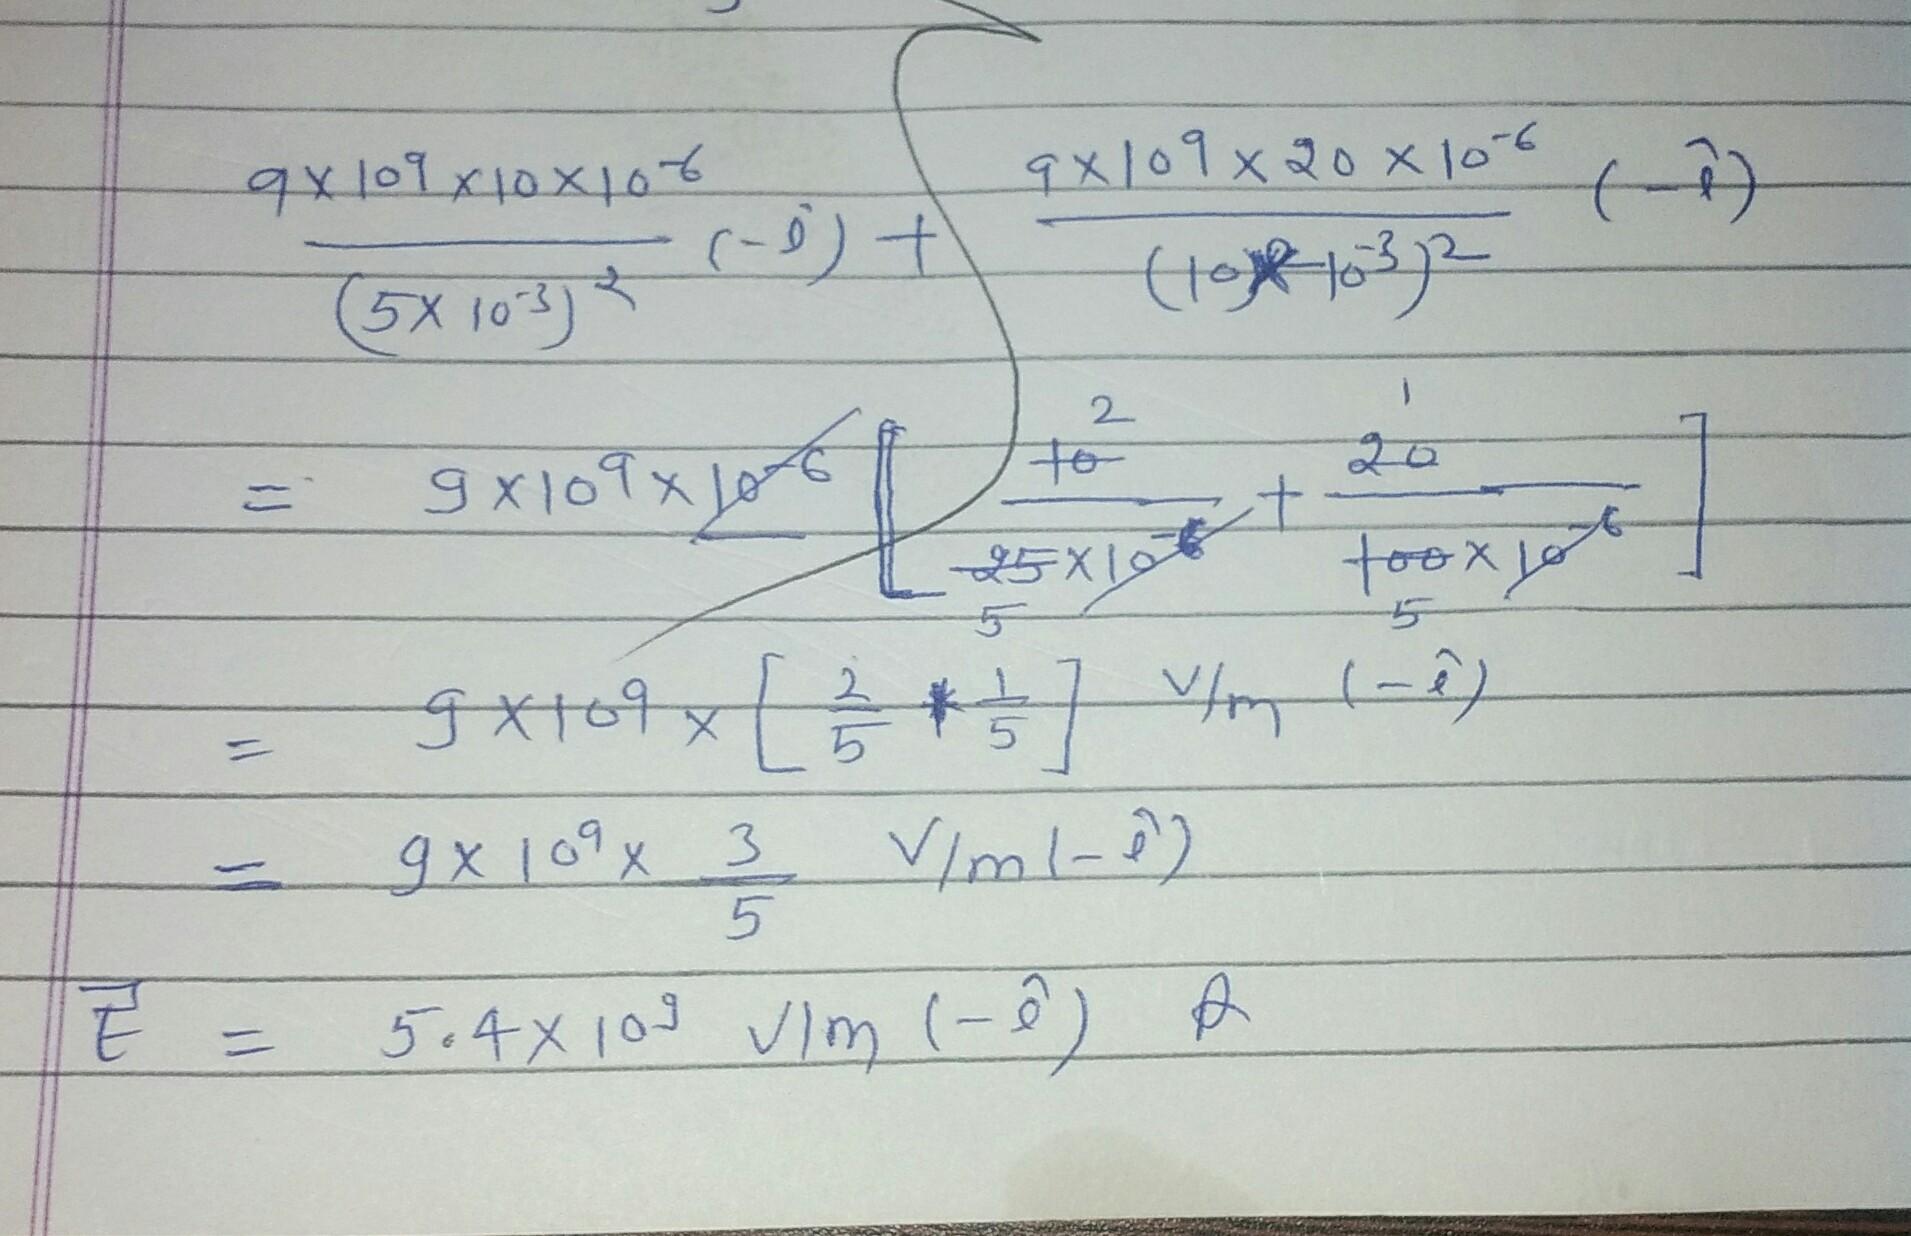 9×10⁹×10×10⁻⁶/(5×10⁻³)² (-î) + 9×10⁹×20×10⁻⁶/(10×10⁻³)² (-î)
= 9×10⁹×10⁻⁶ [ 10/25×10⁻⁶ + 20/100×10⁻⁶ ] 2 5 1 5
= 9×10⁹× [ 2/5 + 1/5 ] V/m (-î)
= 9×10⁹× 3/5 V/m (-î)
E⃗ = 5.4×10⁹ V/m (-î)